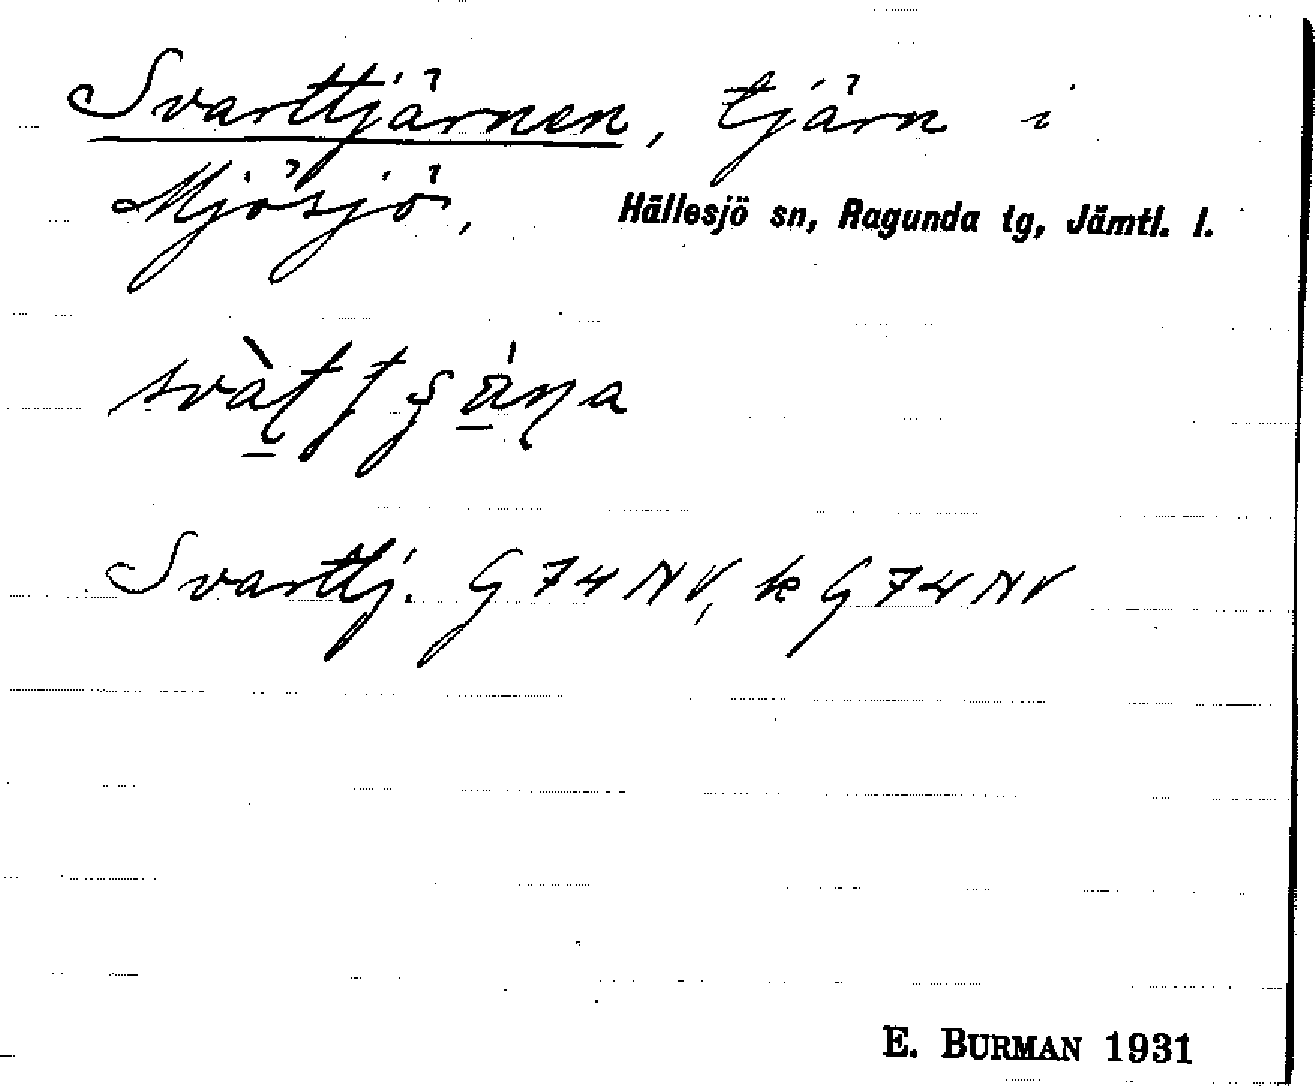 Svarttjärnen, tjärn i
Mjösjö, Hällesjö sn, Ragunda tg, Jämtl. l.
Svarttj. G 74 NV, k G 74 NV
E. BURMAN 1931